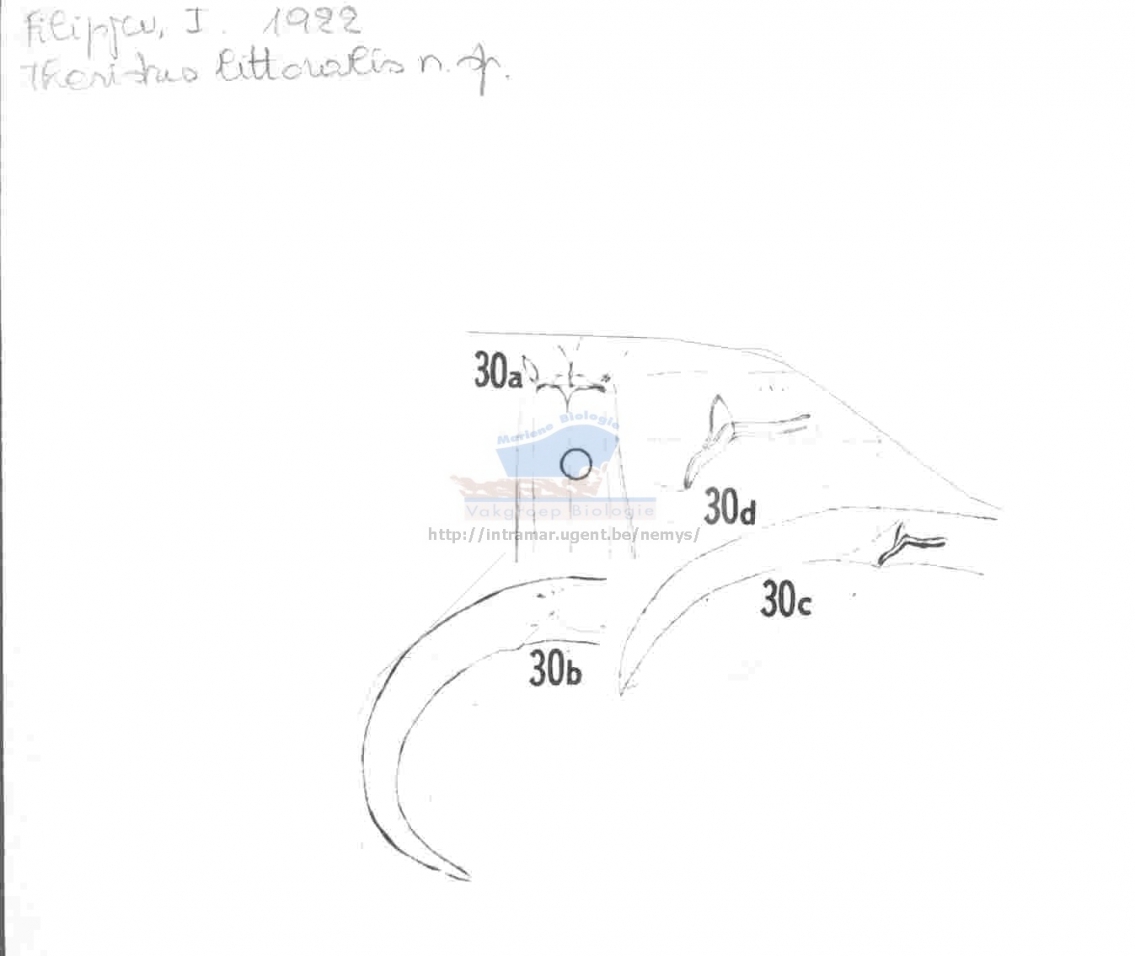 Filipjev, I. 1922
Theristus littoralis n. sp.
30a
Mariene Biologie
30d
Vakgroep Biologie
http://intramar.ugent.be/nemys/
30c
30b